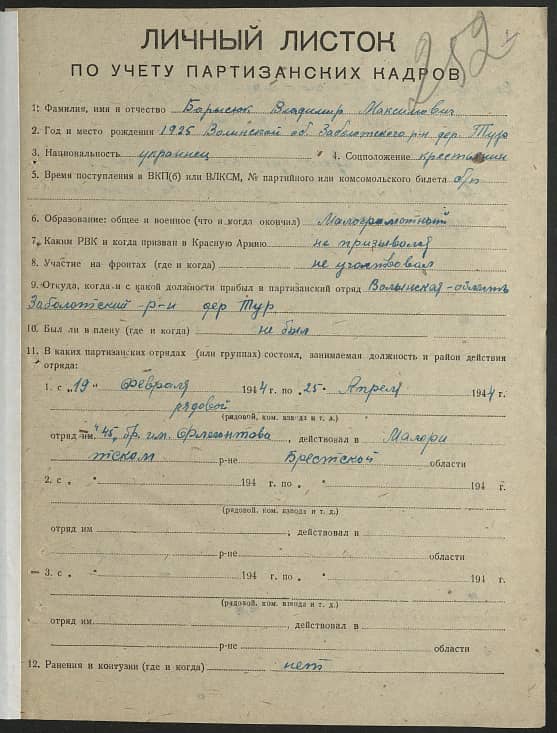 252
ЛИЧНЫЙ ЛИСТОК
ПО УЧЕТУ ПАРТИЗАНСКИХ КАДРОВ
1. Фамилия, имя и отчество Барысюк Владимир Максимович
2. Год и место рождения 1925 Волынской об. Заболотского р-н дер. Тур
3. Национальность украинец 4. Соцположение крестьянин
5. Время поступления в ВКП(б) или ВЛКСМ, № партийного или комсомольского билета б/п
6. Образование: общее и военное (что и когда окончил) Малограмотный
7. Каким РВК и когда призван в Красную Армию не призывался
8. Участие на фронтах (где и когда) не участвовал
9. Откуда, когда и с какой должности прибыл в партизанский отряд Волынская-область
Заболотский-р-н дер Тур
10. Был ли в плену (где и когда) не был
11. В каких партизанских отрядах (или группах) состоял, занимаемая должность и район действия
отряда:
1. с „19" Февраля 1944 г. по „25" Апреля 1944 г.
рядовой
(рядовой, ком. взвода и т. д.)
отряд им. "45" бр. им. Флегонтова, действовал в Малори
тском р-не Брестской области
2. с „ " 194 г. по „ " 194 г.
(рядовой, ком. взвода и т. д.)
отряд им ; действовал в
р-не области
3. с „ " 194 г. по „ " 194 г.
(рядовой, ком. взвода и т. д.)
отряд им , действовал в
р-не области
12. Ранения и контузии (где и когда) нет